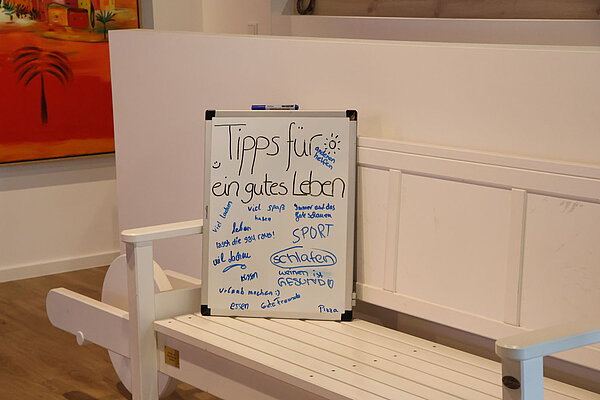 Tipps für
anderen
helfen
ein gutes Leben
viel laben
viel spaß
haben
Immer auf das
Gute schauen
leben
lasst die sau raus!
SPORT
viel lachen
schlafen
küssen
weinen ist
GESUND
Urlaub machen :)
essen
Gute Freunde
Pizza